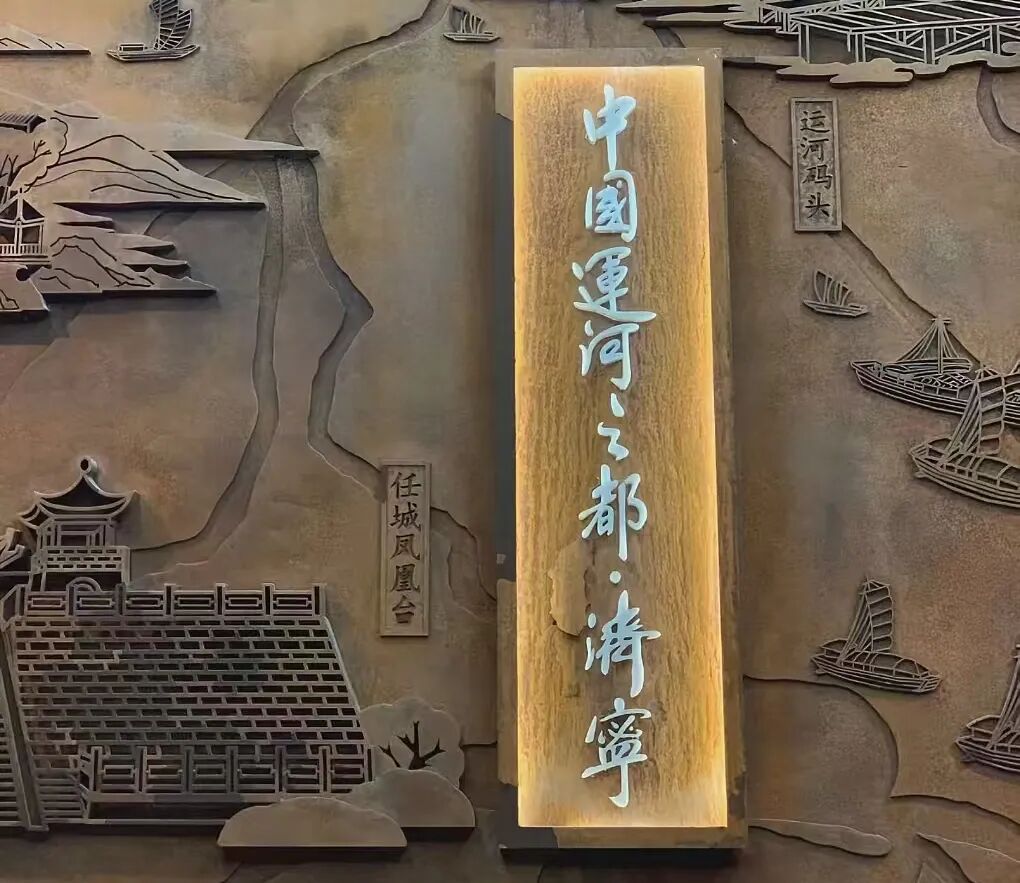 中國運河之都·濟寧
运河码头
任城凤凰台